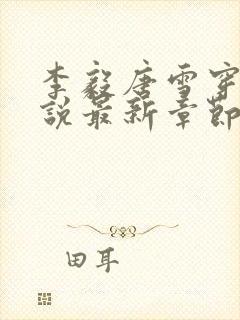 李毅唐雪穿
説最新章節
田耳